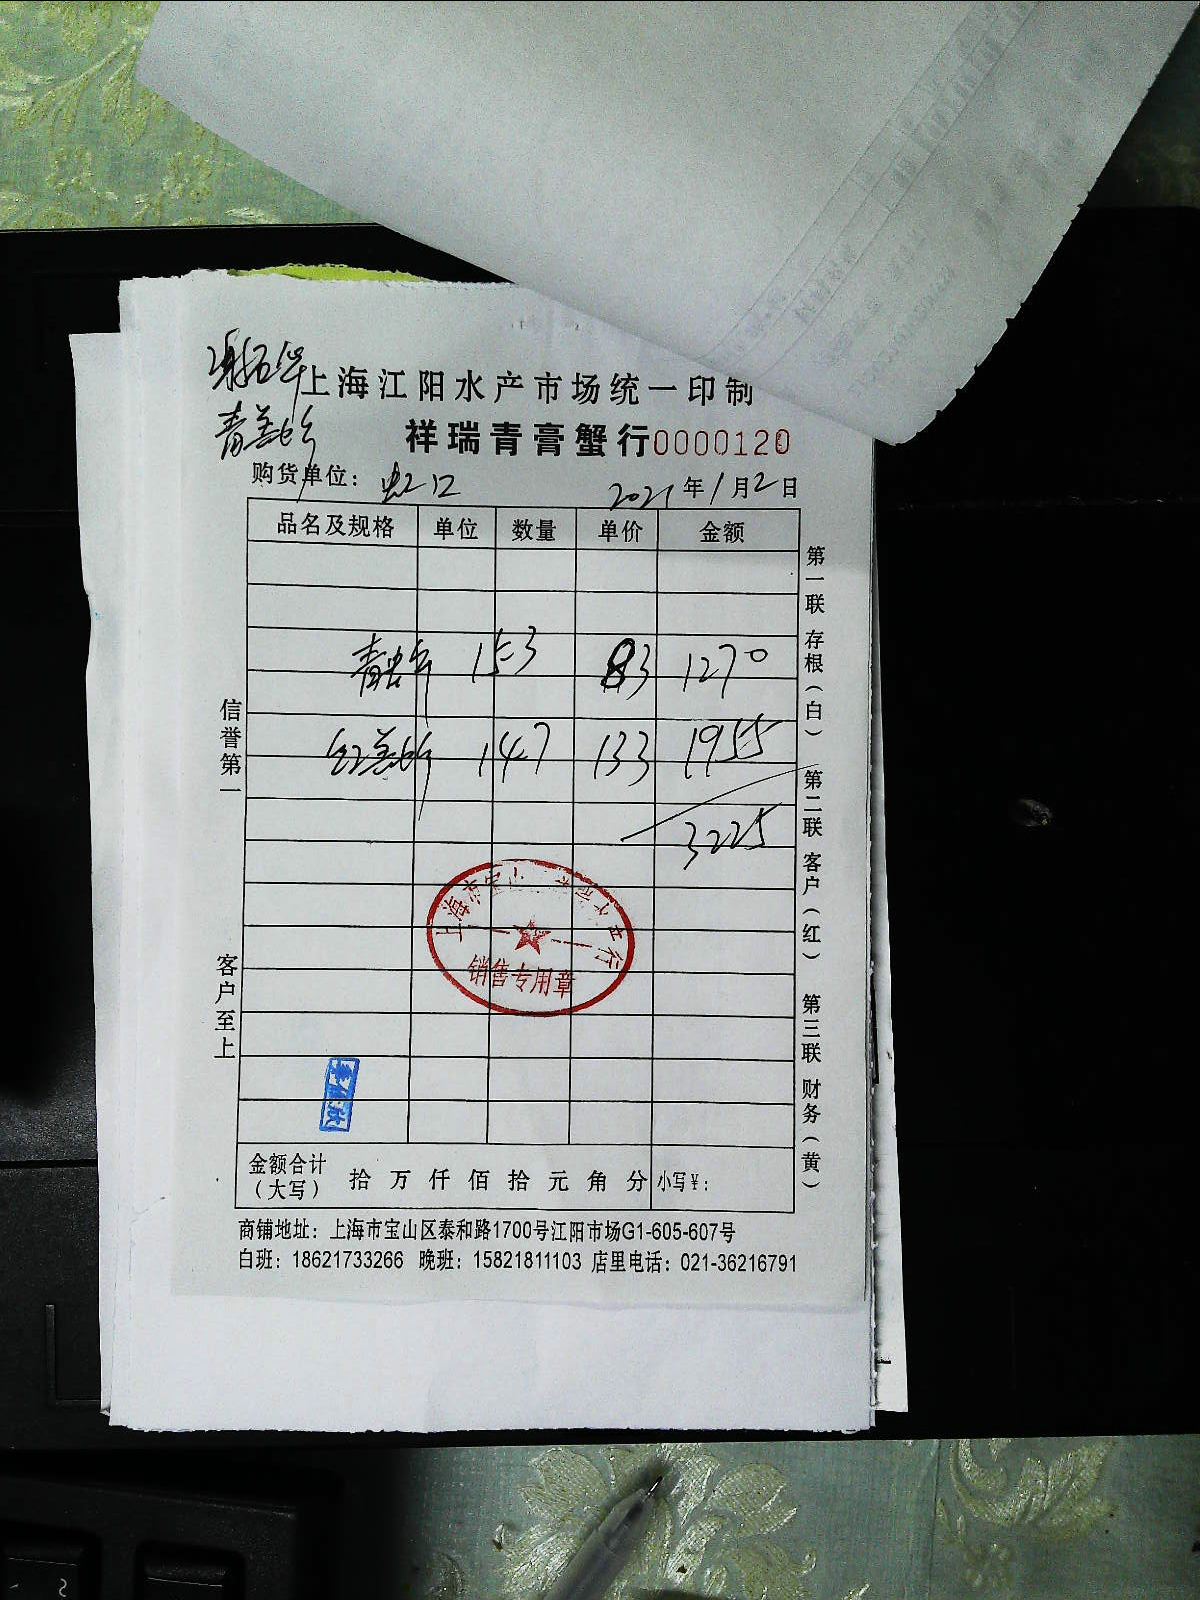 上海江阳水产市场统一印制
祥瑞青膏蟹行0000120
购货单位： 虹口 2021年1月2日
品名及规格 单位 数量 单价 金额
153 83 1270
147 133 1955
3225
信誉第一
客户至上
第一联 存根（白） 第二联 客户（红） 第三联 财务（黄）
上海市宝山
行
销售专用章
金额合计（大写） 拾 万 仟 佰 拾 元 角 分 小写¥：
商铺地址：上海市宝山区泰和路1700号江阳市场G1-605-607号
白班：18621733266 晚班：15821811103 店里电话：021-36216791